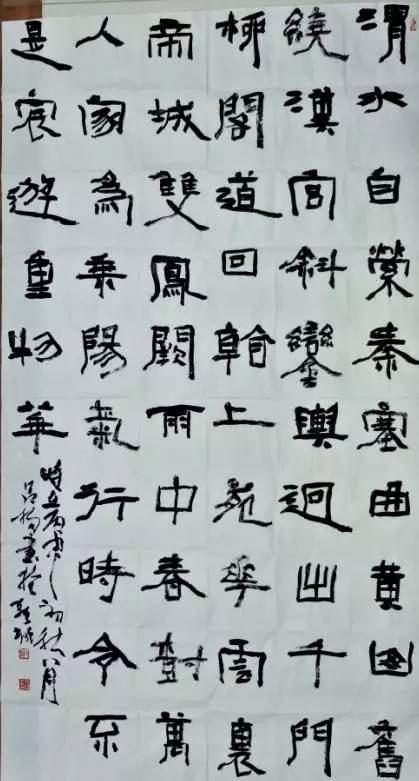 渭水自縈秦塞曲黃山舊
繞漢宮斜鑾輿迥出千門
柳閣道回看上苑華雲裏
帝城雙鳳闕雨中春樹萬
人家為乘陽氣行時令不
是宸遊重物華
時在丙申之初秋八月
書於